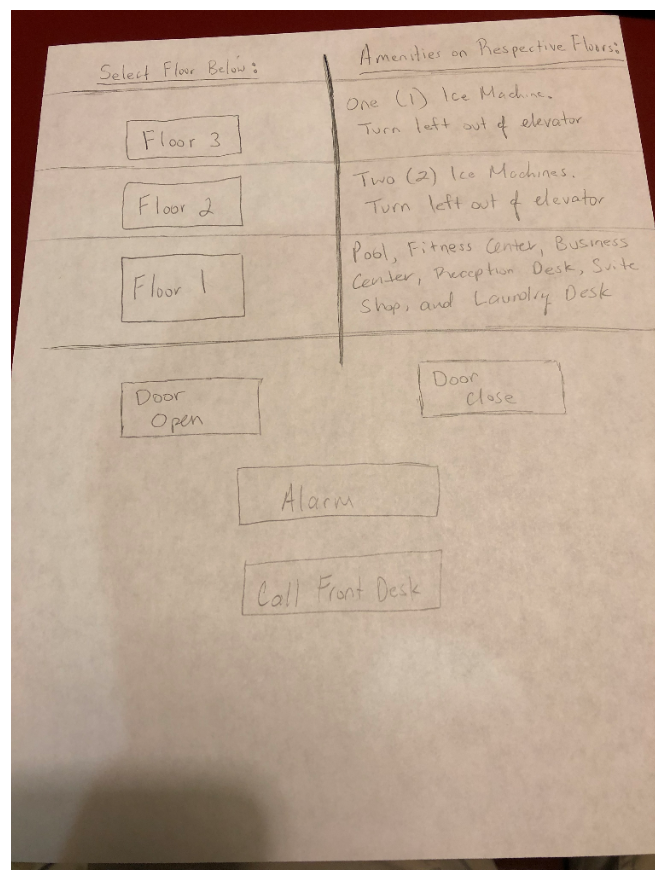 Select Floor Below:
Amenities on Respective Floors:
Floor 3
One (1) Ice Machine.
Turn left out of elevator
Floor 2
Two (2) Ice Machines.
Turn left out of elevator
Floor 1
Pool, Fitness Center, Business
Center, Reception Desk, Suite
Shop, and Laundry Desk
Door
Open
Door
Close
Alarm
Call Front Desk